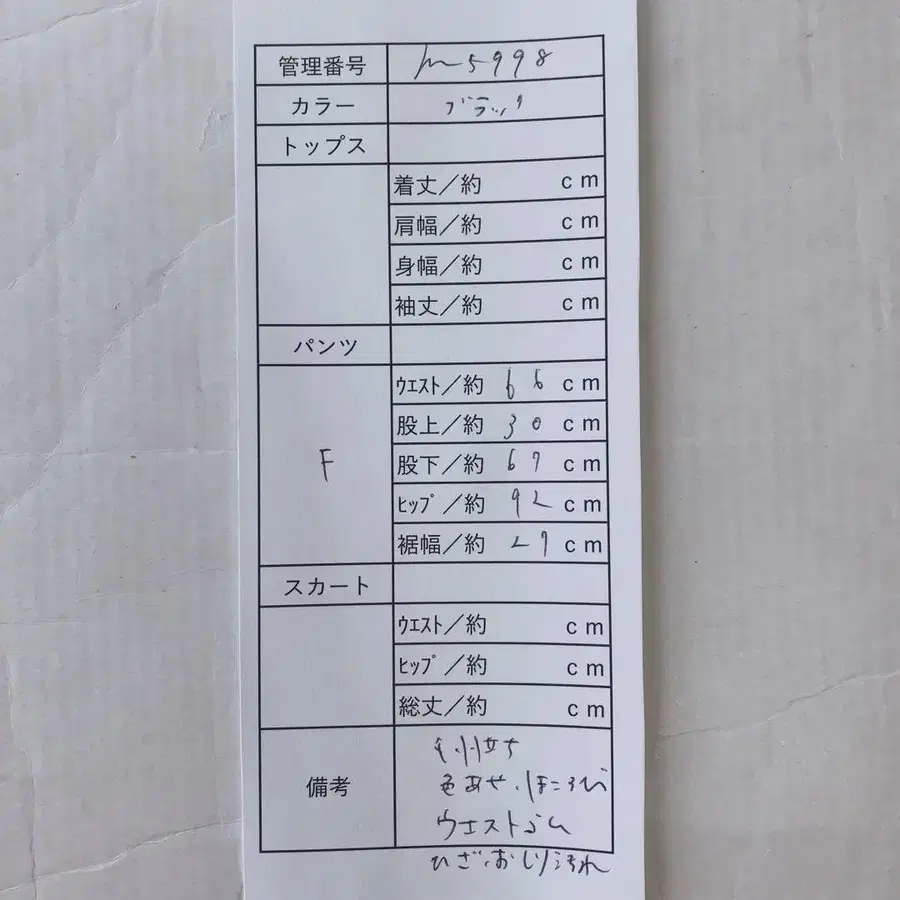 管理番号 m5998
カラー ブラック
トップス
着丈／約 cm
肩幅／約 cm
身幅／約 cm
袖丈／約 cm
パンツ
F
ウエスト／約 66 cm
股上／約 30 cm
股下／約 67 cm
ヒップ／約 92 cm
裾幅／約 27 cm
スカート
ウエスト／約 cm
ヒップ／約 cm
総丈／約 cm
備考
毛羽立ち
色あせ.ほころび
ウエストゴム
ひざ.おしり汚れ